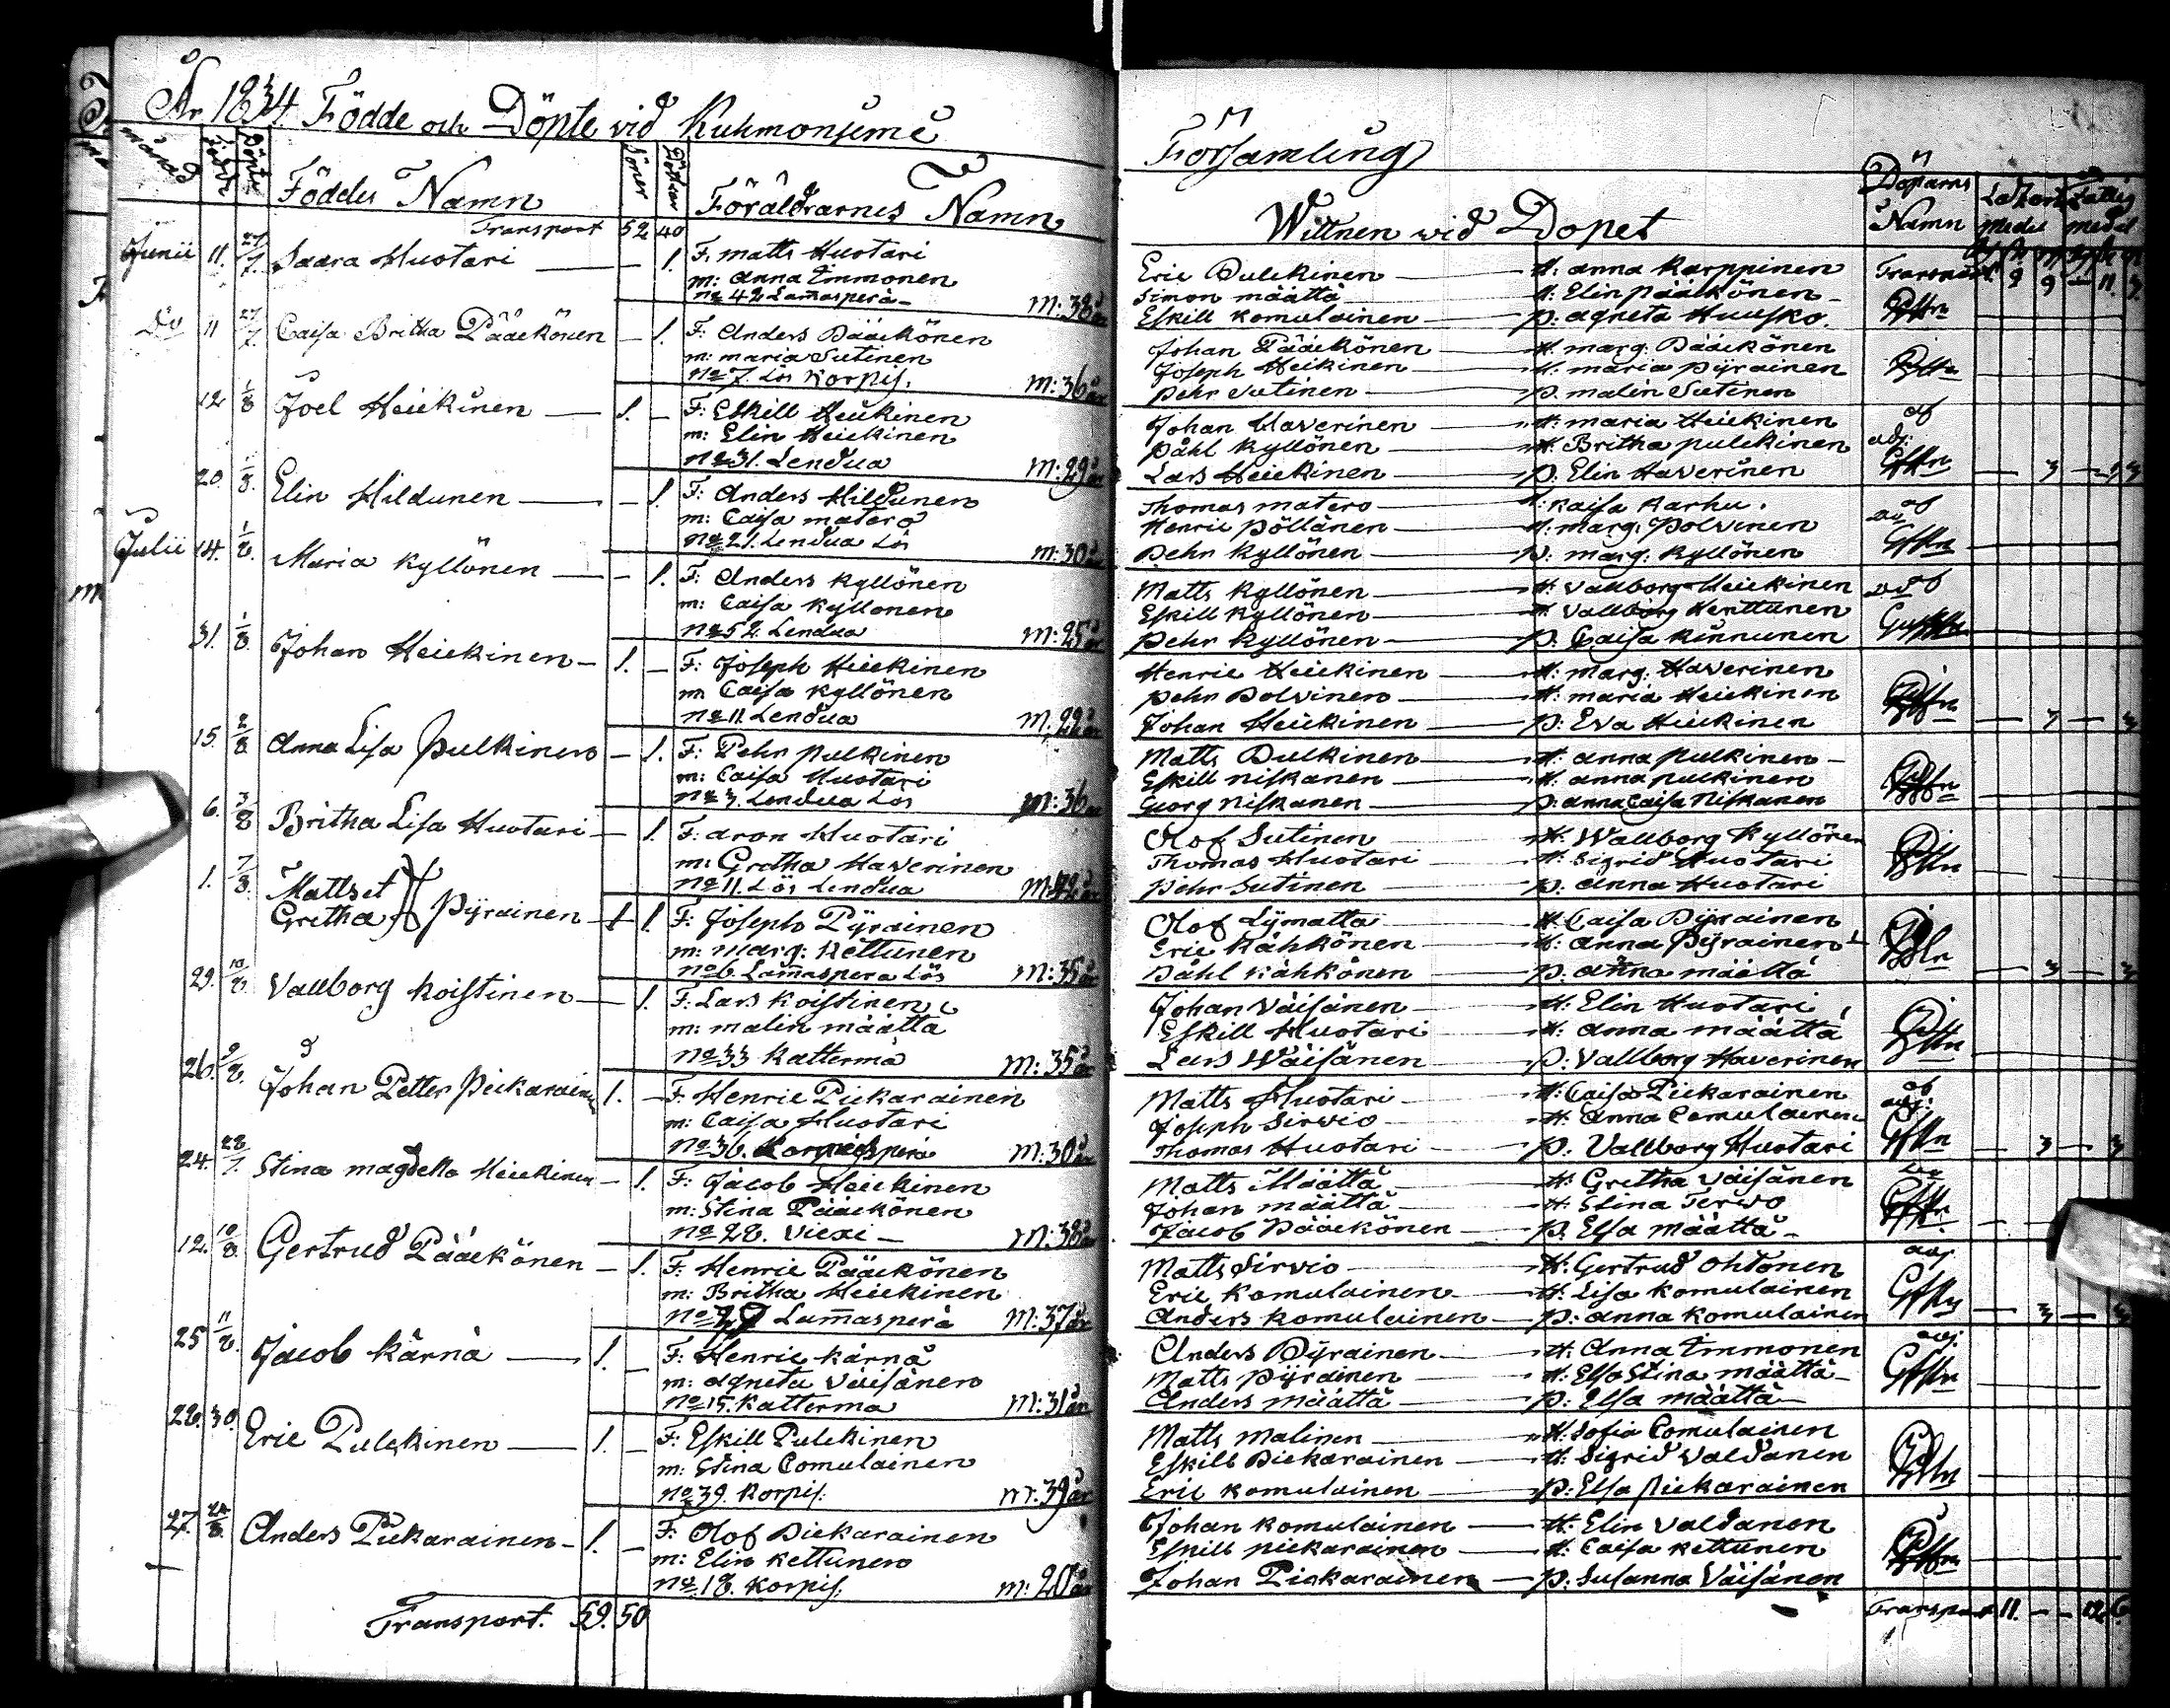 År 1834. Födde och Döpte vid Kuhmoniemi
månad Födde Döpte Föddes Namn Söner Döttrar Föräldrarnes Namn
Transport 52 40
Junii 11. 27/7. Saara Huotari — — 1. F. Matts Huotari
m: Anna Immonen
No 42 Lamasperä m: 38 år
Do 11 27/7. Caisa Britha Pääckönen — 1. F: Anders Pääckönen
m: Maria Sutinen
No 7. Lös Korpis. m: 36 år
12 1/8 Joel Heickinen — 1. — F: Eskill Heickinen
m: Elin Heickinen
No 31. Lendua m: 29 år
20. 1/8. Elin Hildunen — — 1. F: Anders Hildunen
m: Caisa Matero
No 21. Lendua Lös m: 30 år
Julii 14. 1/8. Maria Kyllönen — — 1. F: Anders Kyllönen
m: Caisa Kyllonen
No 52. Lendua m: 25 år
31. 1/8. Johan Heickinen — 1. — F: Joseph Heickinen
m: Caisa Kyllönen
No 11. Lendua m: 22 år
15. 2/8 Anna Lisa Pulkinen — 1. F: Pehr Pulkinen
m: Caisa Huotari
No 3. Lendua Lös m: 36 år
6. 3/8 Britha Lisa Huotari — 1. F: Aron Huotari
m: Gretha Haverinen
No 11. Lös Lendua m: 42 år
1. 7/8. Matts et
Gretha Pyrainen 1 1. F: Joseph Pÿrainen
m: Marg: Kettunen
No 6. Lamaspera Lös m: 35 år
29. 10/8. Vallborg Koistinen — 1. F: Lars Koistinen
m: Malin Määttä
No 33 Katterma m: 35 år
26. 9/8. Johan Petter Pickarainen 1. — F. Henric Pickarainen
m: Caisa Huotari
No 36. m: 30 år
24. 28/7. Stina Magdella Heickinen — 1. F: Jacob Heickinen
m: Stina Pääckönen
No 28. Viexi — m: 38 år
12. 10/8. Gertrud Pääckönen — 1. F: Henric Pääckönen
m: Britha Heickinen
Lamasperä m: 37 år
25 11/8. Jacob Kärnä — 1. — F: Henric Kärnä
m: Agneta Väisänen
No 15. Katterma m: 31 år
28. 30. Eric Pulckinen — 1. — F: Eskill Pulckinen
m: Stina Comulainen
No 39. Korpis. m: 39 år
27. 24/8. Anders Pickarainen — 1. — F: Olof Pickarainen
m: Elin Kettunen
No 18. Korpis. m: 20 år
Transport. 59. 50
Församling
Wittnen wid Dopet Döparns Namn
Eric Pulckinen — H: Anna Karppinen Transport 9 9 — 11.
Simon Määttä — H: Elin Pääckönen
Eskill Komulainen — P: Agneta Huusko.
Johan Pääckönen — H: Marg: Pääckönen
Joseph Heickinen — H: Maria Pyrainen
Pehr Sutinen — P. Malin Sutinen
Johan Haverinen — H: Maria Heickinen af
Påhl Kyllönen — H: Britha Pulckinen adj:
Lars Heickinen — P. Elin Haverinen — 3 —
Thomas Matero — H: Kaisa Karhu.
Henric Pöllänen — H: Marg: Polvinen
Pehr Kyllönen — P: Marg: Kyllönen
Matts Kyllönen — H: Vallborg Heickinen
Eskill Kyllönen — H: Vallborg Kenttunen
Pehr Kyllönen — P. Caisa Kinnunen
Henric Heickinen — H: Marg: Haverinen
Pehr Polvinen — H: Maria Heickinen
Johan Heickinen — P: Eva Heickinen — 3 — 3
Matts Pulkinen — H: Anna Pulkinen
Eskill Niskanen — H: Anna Pulkinen
Georg Niskanen — P: Anna Caisa Niskanen
Olof Sutinen — H: Wallborg Kyllönen
Thomas Huotari — H: Sigrid Huotari
Pehr Sutinen — P. Anna Huotari
Olof Lÿmatta — H Caisa Pÿrainen
Eric Kähkönen — H: Anna Pÿrainen
Påhl Kähkönen — P. Anna Määttä — 3 — 3
Johan Väisänen — H: Elin Huotari
Eskill Huotari — H: Anna Määttä
Lars Wäisänen — P: Vallborg Haverinen
Matts Huotari — H: Caisa Pickarainen af
Joseph Sirvio — H: Anna Comulainen adj:
Thomas Huotari — P. Vallborg Huotari — 3 — 3
Matts Määttä — H: Gretha Väisänen
Johan Määttä — H: Stina Tervo
Jacob Pääckönen — P. Elsa Määttä
Matts Sirvio — H: Gertrud Ohtonen adj.
Eric Komulainen — H: Lisa Komulainen
Anders Komulainen — P: Anna Komulainen — 3 — 3
Anders Pÿrainen — H: Anna Immonen adj.
Matts Pÿrainen — H: Elsa Stina Määttä
Anders Määttä — P: Elsa Määttä
Matts Malinen — H: Sofia Comulainen
Eskill Pickarainen — H: Sigrid Valdanen
Eric Komulainen — P: Elsa Pickarainen
Johan Komulainen — H: Elin Valdanen
Eskill Pickarainen — H: Caisa Kettunen
Johan Pickarainen — P: Susanna Väisänen
Transport 11. — — 12 6.